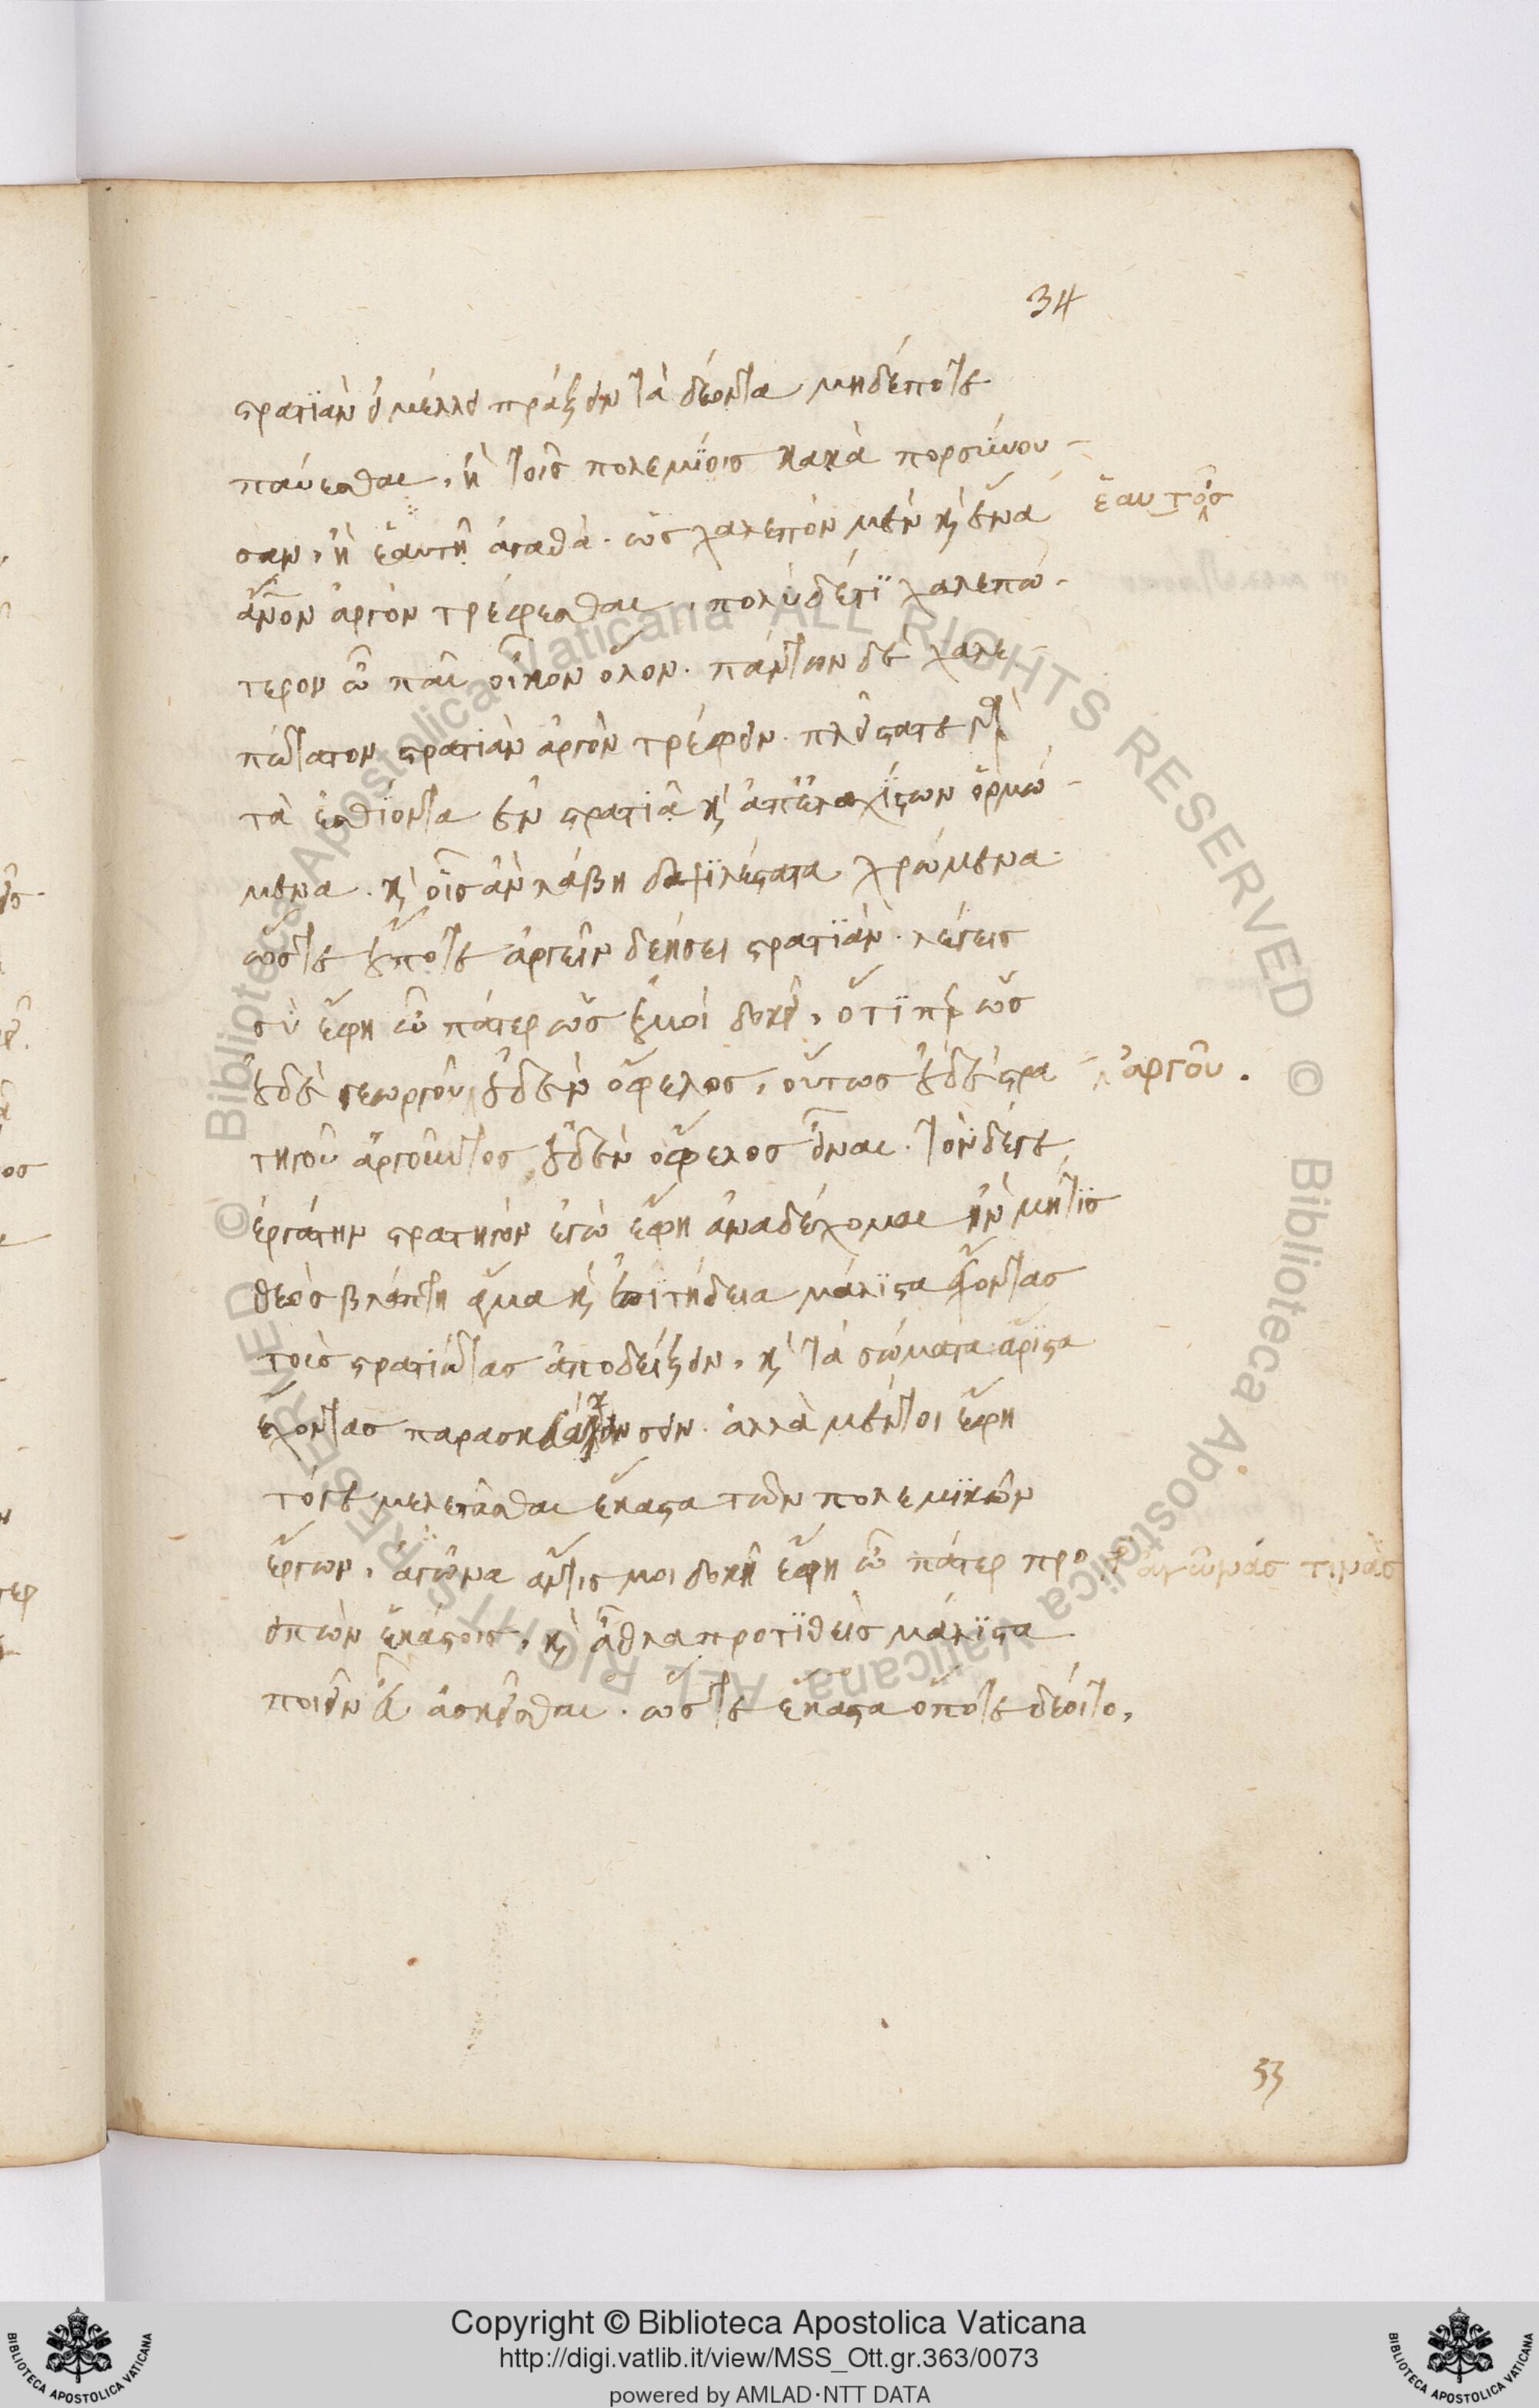 34
στρατιὰν εἰ μέλλει πράξειν τὰ δέοντα μηδέποτε
παύεσθαι, ἢ τοῖς πολεμίοις κακὰ πορσύνου-
σαν, ἢ ἑαυτῇ ἀγαθά. ὡς χαλεπὸν μὲν κ ἕνα
ἑαυτοῖς
ἄνον ἀργὸν τρέφεσθαι, πολὺ δέτι χαλεπώ-
τερον ὦ παῖ οἶκον ὅλον. πάντων δὲ χαλε-
πώτατον στρατιὰν ἀργὸν τρέφειν. πλεῖστάτε
τὰ ἐσθίοντα ἐν στρατιᾷ κ ἀπ' ἐλαχίστων ὁρμώ-
μενα. κ οἷς ἂν λάβη δαψιλέστατα χρώμενα.
ὥστε οὔποτε ἀργεῖν δεήσει στρατιὰν. λέγεις
σὺ ἔφη ὦ πάτερ ὡς ἐμοὶ δοκεῖ, ὅτι περ ὡς
οὐδὲ γεωργοῦ οὐδὲν ὄφελος, οὕτως οὐδὲ στρα
ἀργοῦ.
τηγοῦ ἀργοῦντος οὐδὲν ὄφελος εἶναι. τὸν δέγε
ἐργάτην στρατηγὸν ἐγὼ ἔφη ἀναδέχομαι ἢν μήτις
θεὸς βλάπτη ἅμα κ ἐπιτήδεια μάλιστα ἔχοντας
τοὺς στρατιώτας ἀποδείξειν, κ τὰ σώματα ἄριστα
ἔχοντας παρασκευάσειν. ἀλλὰ μέντοι ἔφη
τόγε μελετᾶσθαι ἕκαστα τῶν πολεμικῶν
ἔργων, ἀγῶνα ἄν τις μοι δοκῆ ἔφη ὦ πάτερ προ
ἀγῶνάς τινὰς
ειπὼν ἑκάστοις, κ ἆθλα προτιθεὶς μάλιστα
ποιεῖν εὖ ἀσκεῖσθαι. ὥστε ἕκαστα ὁπότε δέοιτο,
53
Copyright © Biblioteca Apostolica Vaticana
http://digi.vatlib.it/view/MSS_Ott.gr.363/0073
powered by AMLAD·NTT DATA